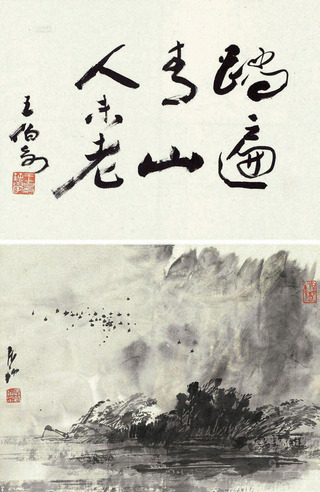 踏遍
青山
人未老
王伯敏